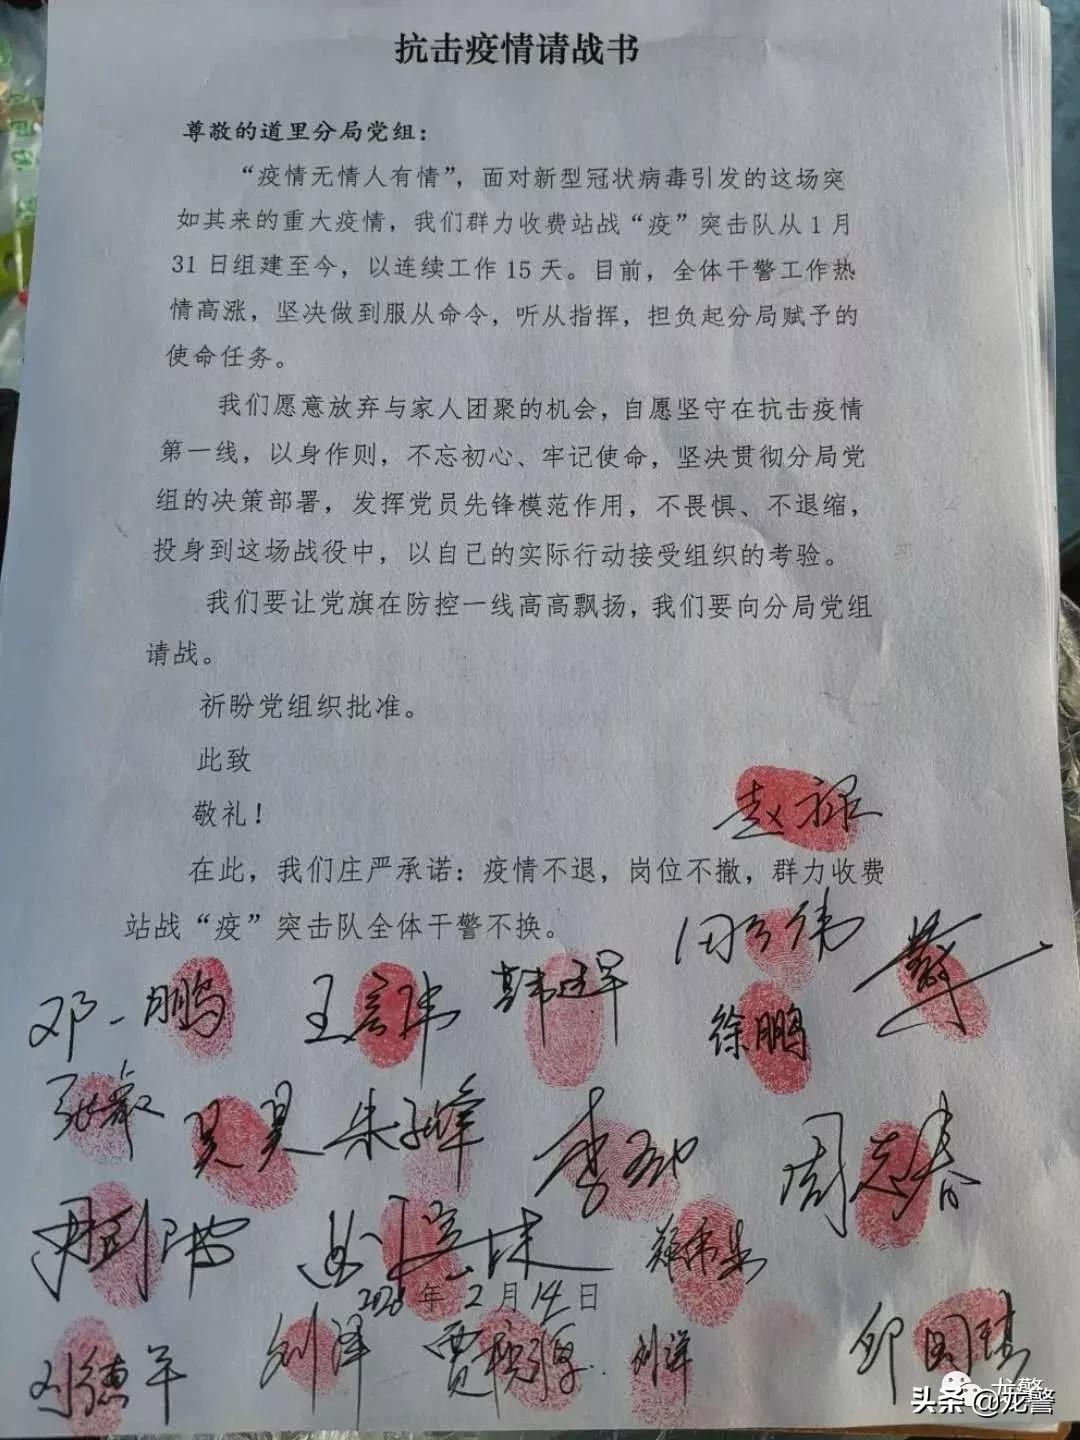 抗击疫情请战书
尊敬的道里分局党组：
“疫情无情人有情”，面对新型冠状病毒引发的这场突
如其来的重大疫情，我们群力收费站战“疫”突击队从1月
31日组建至今，以连续工作15天。目前，全体干警工作热
情高涨，坚决做到服从命令，听从指挥，担负起分局赋予的
使命任务。
我们愿意放弃与家人团聚的机会，自愿坚守在抗击疫情
第一线，以身作则，不忘初心、牢记使命，坚决贯彻分局党
组的决策部署，发挥党员先锋模范作用，不畏惧、不退缩，
投身到这场战役中，以自己的实际行动接受组织的考验。
我们要让党旗在防控一线高高飘扬，我们要向分局党组
请战。
祈盼党组织批准。
此致
敬礼！
赵禄
在此，我们庄严承诺：疫情不退，岗位不撤，群力收费
站战“疫”突击队全体干警不换。
邓一鹏 王彦伟 韩廷军 徐鹏
吴昊 朱子峰 周志春
2020年2月14日
刘德军 刘泽 刘洋 邱国琪
龙警
头条@龙警